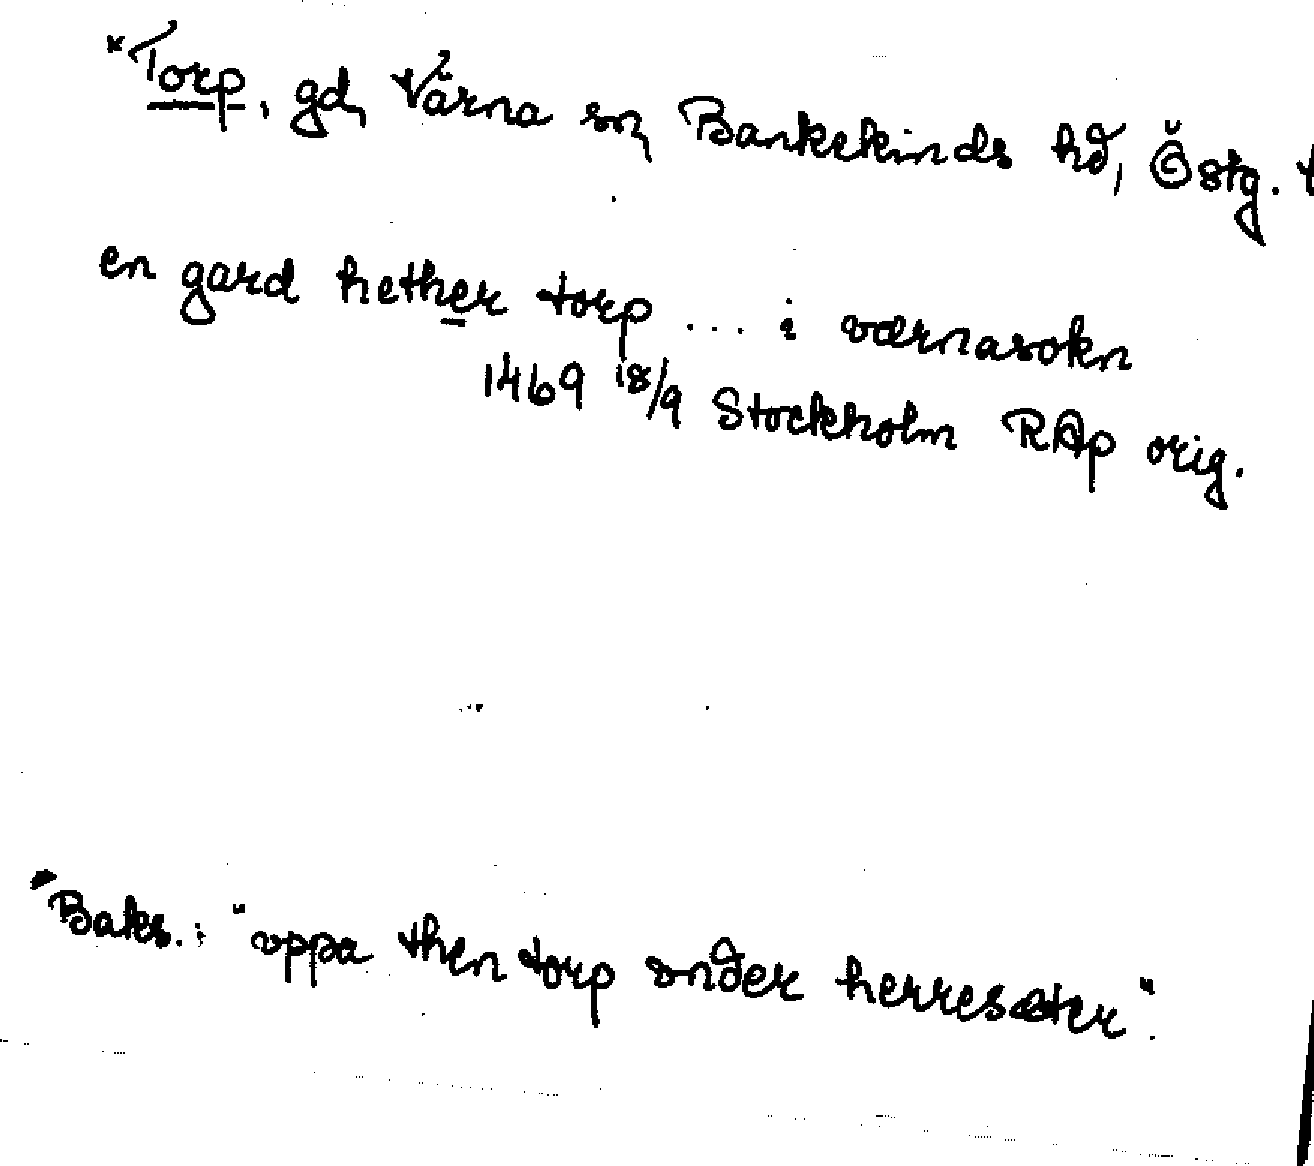 *Torp, gd, Värna sn, Bankekinds hd, Östg.
en gard hether torp ... iværnasokn
1469 18/9 Stockholm RAp orig.
Baks.: "oppa then torp onder herresæter".